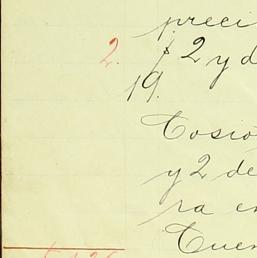 preci
2. $ 2 y d
19.
Cosio
y 2 de
ra en
Cuen